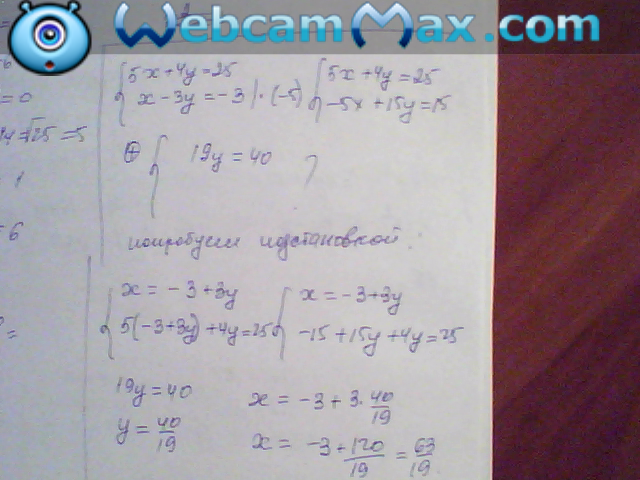 WebcamMax.com
= 0
= √25 = 5
1
6
=
{ 5x + 4y = 25
x - 3y = -3 | · (-5)
{ 5x + 4y = 25
-5x + 15y = 15
⊕ { 19y = 40 ?
попробуем подстановкой.
{ x = -3 + 3y
5(-3 + 3y) + 4y = 25
{ x = -3 + 3y
-15 + 15y + 4y = 25
19y = 40
y = 40/19
x = -3 + 3 · 40/19
x = -3 + 120/19 = 63/19